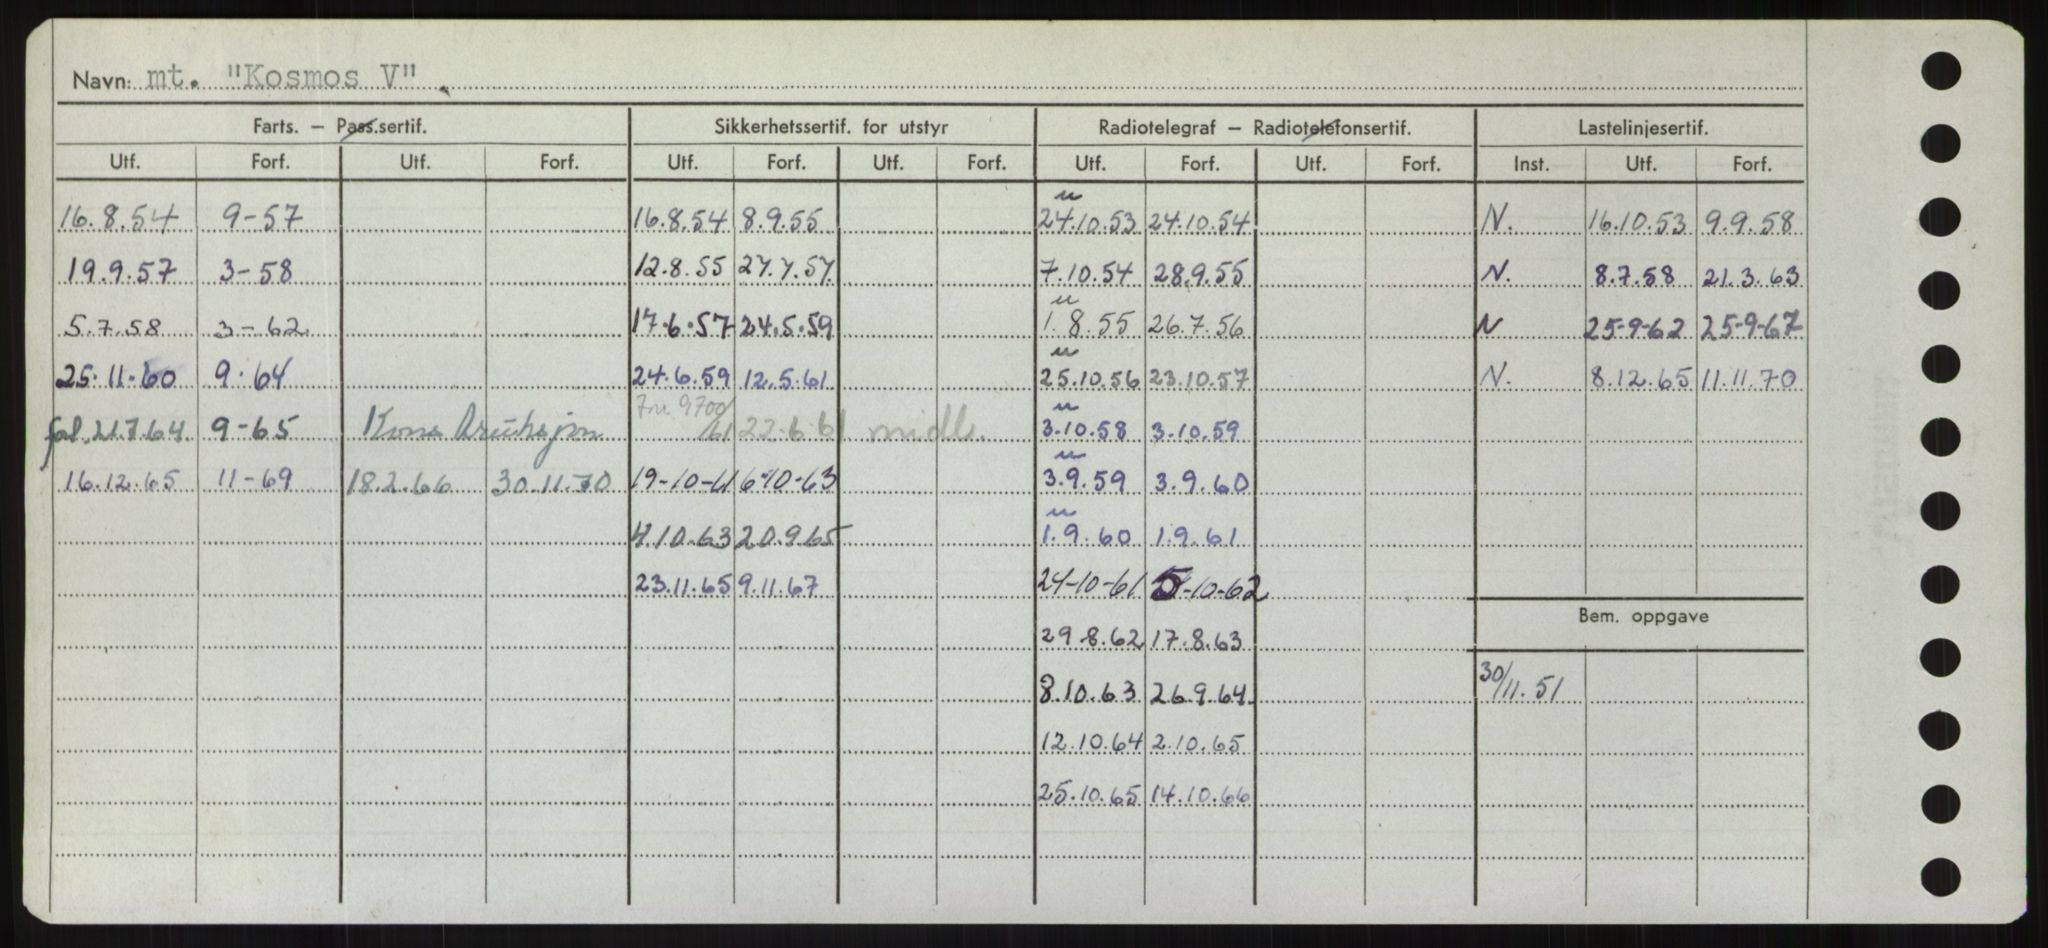 Navn: mt. "Kosmos V".
Farts. – Pass.sertif. Sikkerhetssertif. for utstyr Radiotelegraf – Radiotelefonsertif. Lastelinjesertif.
Utf. Forf. Utf. Forf. Utf. Forf. Utf. Forf. Utf. Forf. Utf. Forf. Inst. Utf. Forf.
16.8.54 9-57 16.8.54 8.9.55 24.10.53 24.10.54 N. 16.10.53 9.9.58
19.9.57 3-58 12.8.55 27.7.57 7.10.54 28.9.55 N. 8.7.58 21.3.63
5.7.58 3-62 17.6.57 24.5.59 1.8.55 26.7.56 N 25-9-62 25-9-67
25.11.60 9.64 24.6.59 12.5.61 25.10.56 23.10.57 N. 8.12.65 11.11.70
9700/61
21.7.64 9-65 22.6.61 midl. 3.10.58 3.10.59
16.12.65 11-69 18.2.66 30.11.70 19-10-61 6-10-63 3.9.59 3.9.60
4.10.63 20.9.65 1.9.60 1.9.61
23.11.65 9.11.67 24-10-61 -10-62
Bem. oppgave
29.8.62 17.8.63
8.10.63 26.9.64 30/11.51
12.10.64 2.10.65
25.10.65 14.10.66